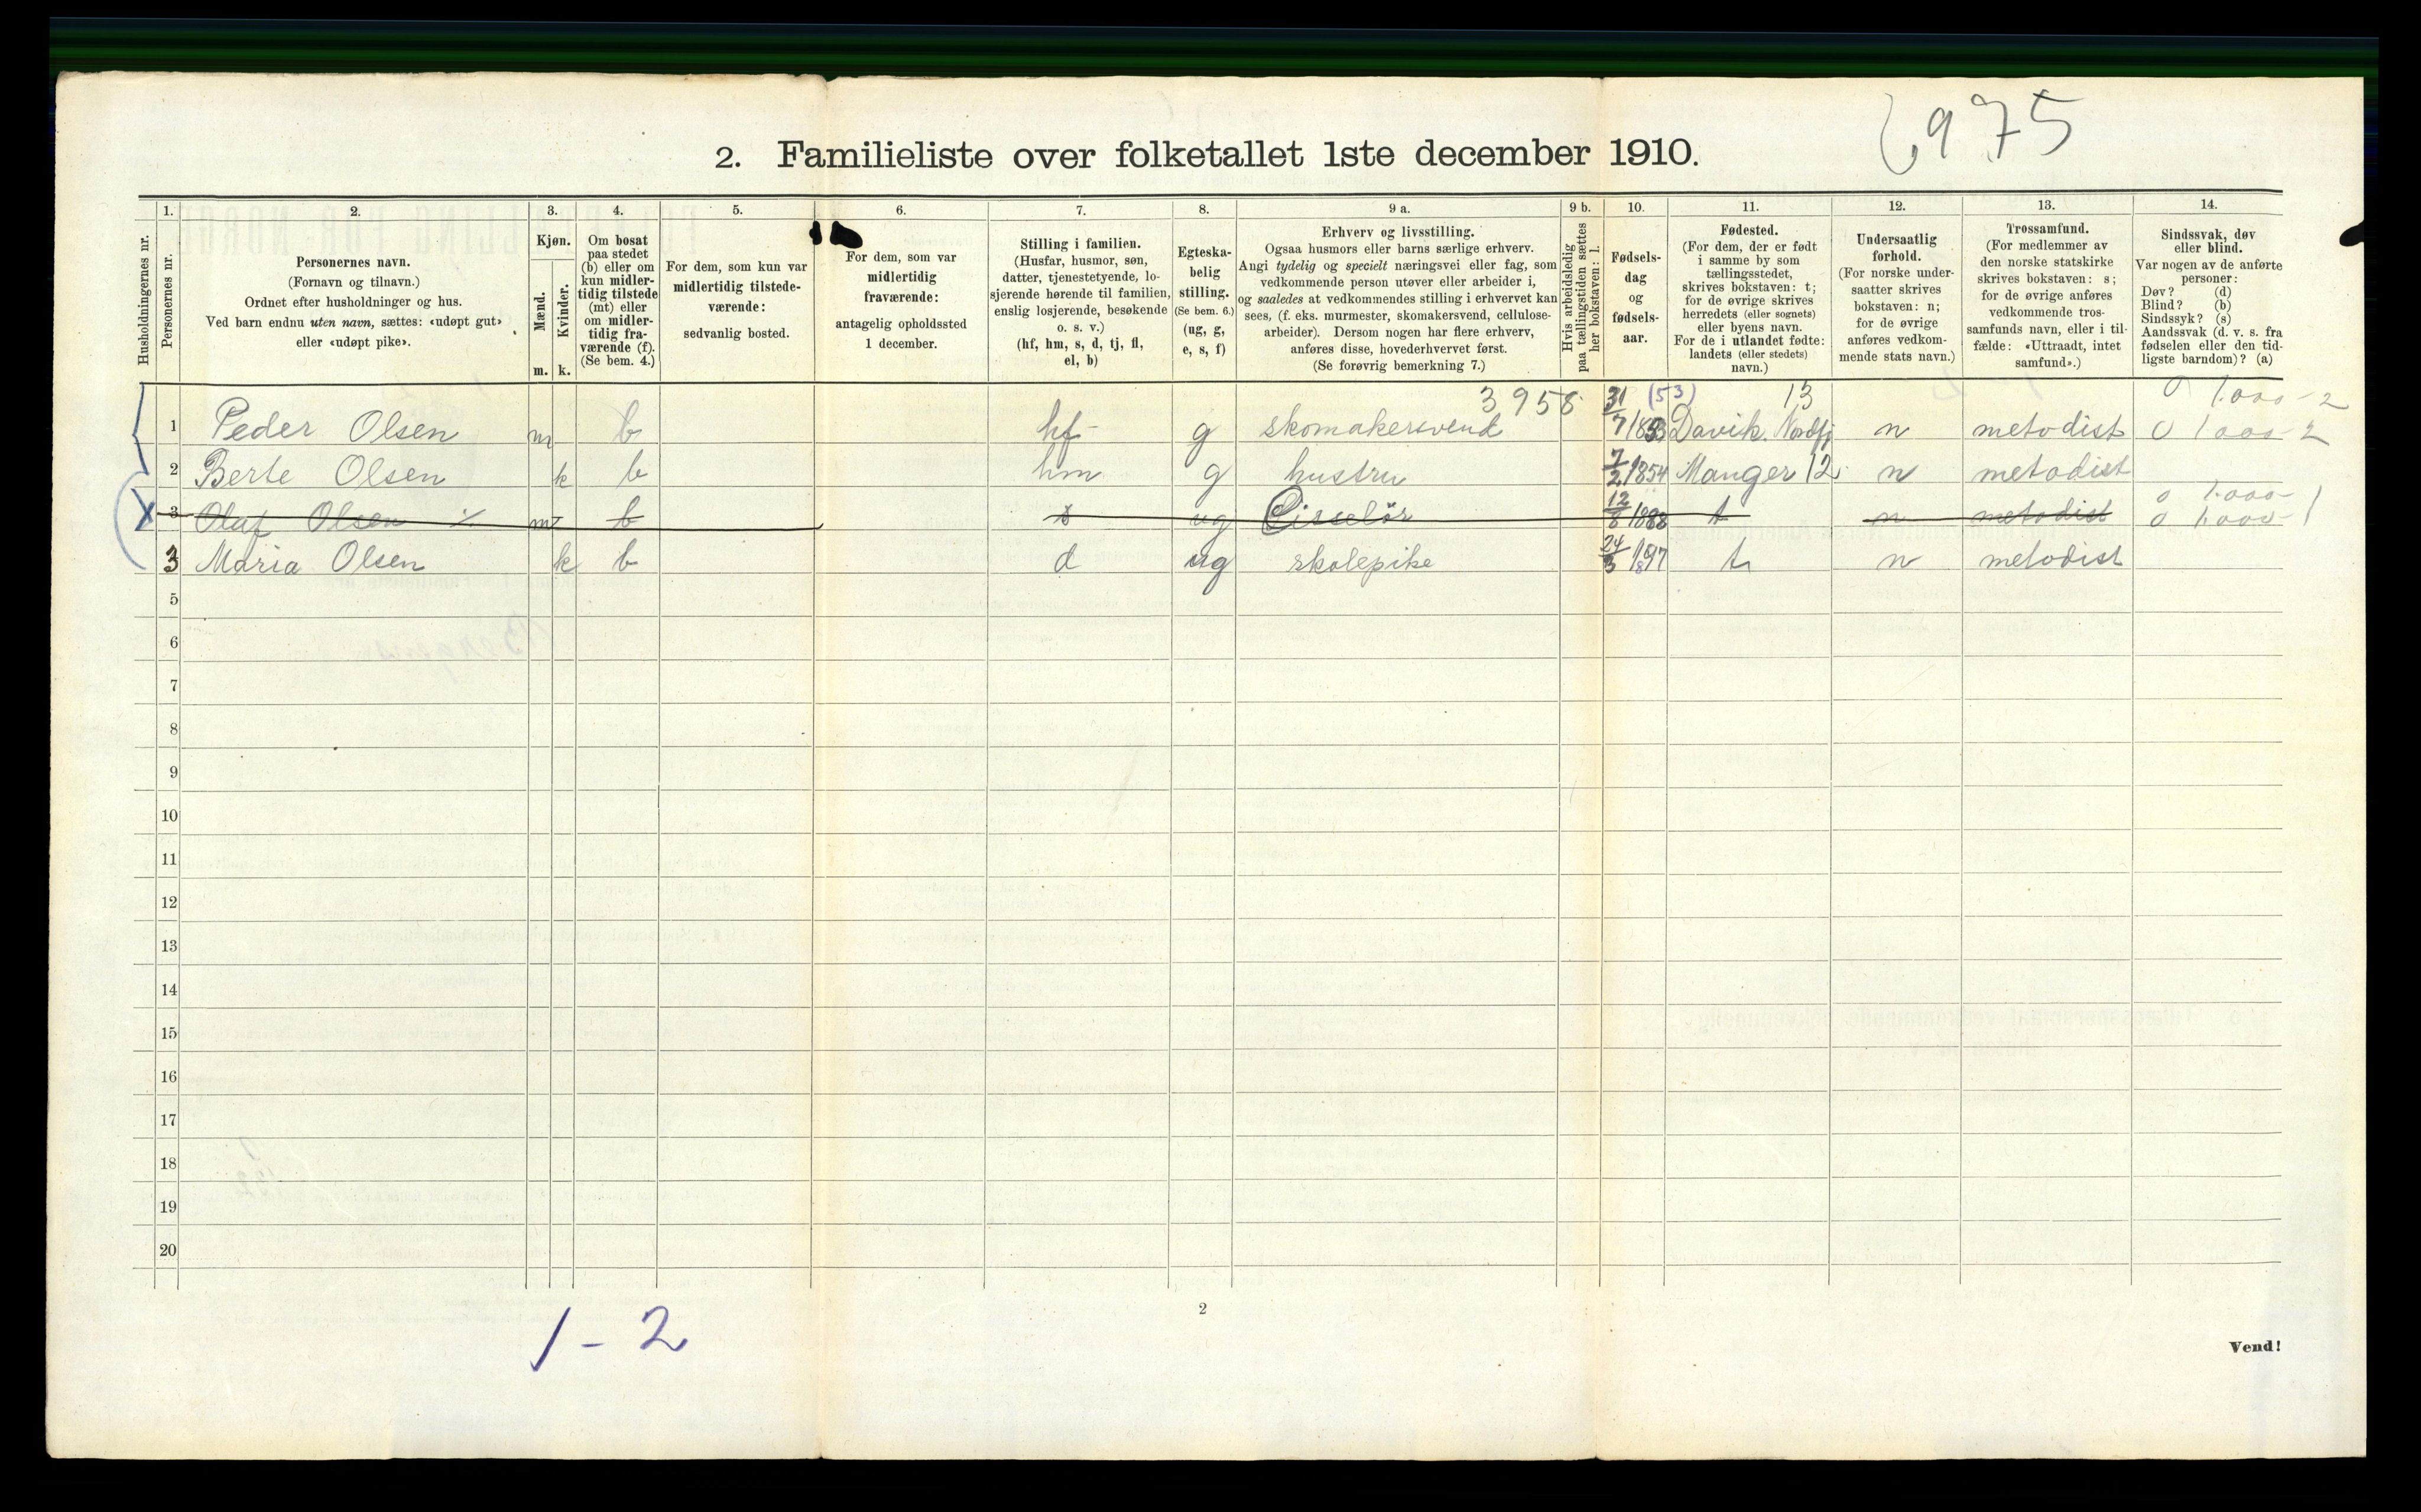 6975
2. Familieliste over folketallet 1ste december 1910.
Husholdningernes nr.
1.
Personernes nr.
2.
Personernes navn.
(Fornavn og tilnavn.)
Ordnet efter husholdninger og hus.
Ved barn endnu uten navn, sættes: «udøpt gut»
eller «udøpt pike».
3.
Kjøn.
Mænd.
Kvinder.
m. k.
4.
Om bosat
paa stedet
(b) eller om
kun midler-
tidig tilstede
(mt) eller
om midler-
tidig fra-
værende (f).
(Se bem. 4.)
5.
For dem, som kun var
midlertidig tilstede-
værende:
sedvanlig bosted.
6.
For dem, som var
midlertidig
fraværende:
antagelig opholdssted
1 december.
7.
Stilling i familien.
(Husfar, husmor, søn,
datter, tjenestetyende, lo-
sjerende hørende til familien,
enslig losjerende, besøkende
o. s. v.)
(hf, hm, s, d, tj, fl,
el, b)
8.
Egteska-
belig
stilling.
(Se bem. 6.)
(ug, g,
e, s, f)
9 a.
Erhverv og livsstilling.
Ogsaa husmors eller barns særlige erhverv.
Angi tydelig og specielt næringsvei eller fag, som
vedkommende person utøver eller arbeider i,
og saaledes at vedkommendes stilling i erhvervet kan
sees, (f. eks. murmester, skomakersvend, cellulose-
arbeider). Dersom nogen har flere erhverv,
anføres disse, hovederhvervet først.
(Se forøvrig bemerkning 7.)
9 b.
Hvis arbeidsledig
paa tællingstiden sættes
her bokstaven: l.
10.
Fødsels-
dag
og
fødsels-
aar.
11.
Fødested.
(For dem, der er født
i samme by som
tællingsstedet,
skrives bokstaven: t;
for de øvrige skrives
herredets (eller sognets)
eller byens navn.
For de i utlandet fødte:
landets (eller stedets)
navn.)
12.
Undersaatlig
forhold.
(For norske under-
saatter skrives
bokstaven: n;
for de øvrige
anføres vedkom-
mende stats navn.)
13.
Trossamfund.
(For medlemmer av
den norske statskirke
skrives bokstaven: s;
for de øvrige anføres
vedkommende tros-
samfunds navn, eller i til-
fælde: «Uttraadt, intet
samfund».)
14.
Sindssvak, døv
eller blind.
Var nogen av de anførte
personer:
Døv? (d)
Blind? (b)
Sindssyk? (s)
Aandssvak (d. v. s. fra
fødselen eller den tid-
ligste barndom)? (a)
3958 (53) 13 0 1.000-2
1 Peder Olsen m b hf g skomakersvend 31/7 1853 Davik Nordfj n metodist 0 1000-2
2 Berte Olsen k b hm g hustru 7/2 1854 Manger 12 n metodist
0 1.000-
X 3 Olaf Olsen m b s ug Ciselør 12/8 1888 t n metodist 0 1.000-1
3 Maria Olsen k b d ug skolepike 24/3 1897 t n metodist
5
6
7
8
9
10
11
12
13
14
15
16
17
18
19
20
1 - 2
2
Vend!